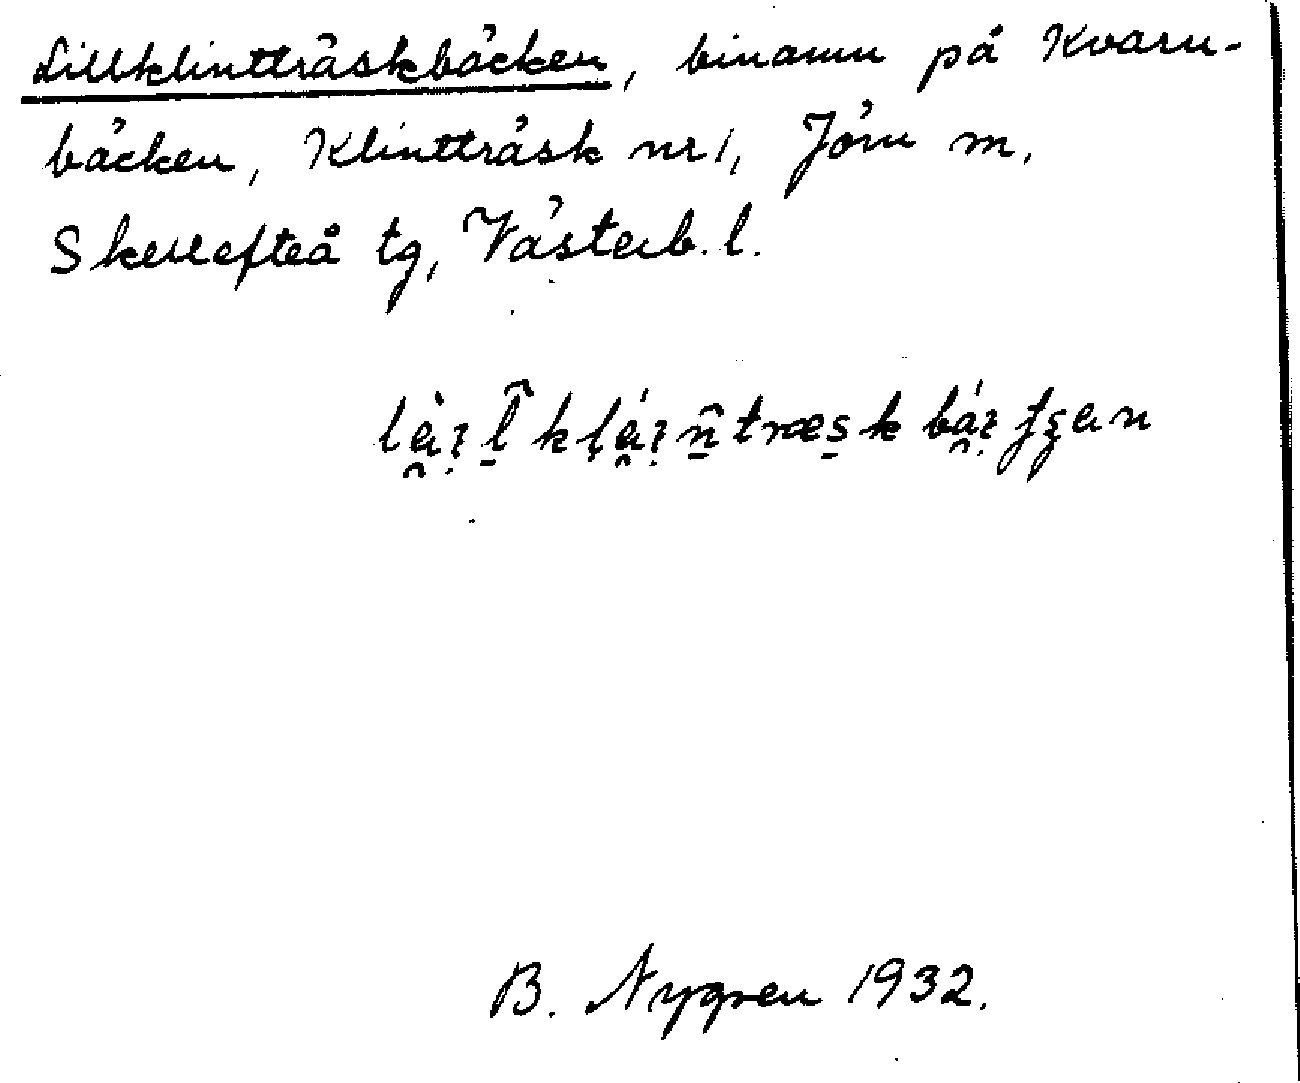 Lillklintträskbäcken, binamn på Kvarn-
bäcken, Klintträsk nr 1, Jörn m,
Skellefteå tg, Västerb. l.
B. Nygren 1932.